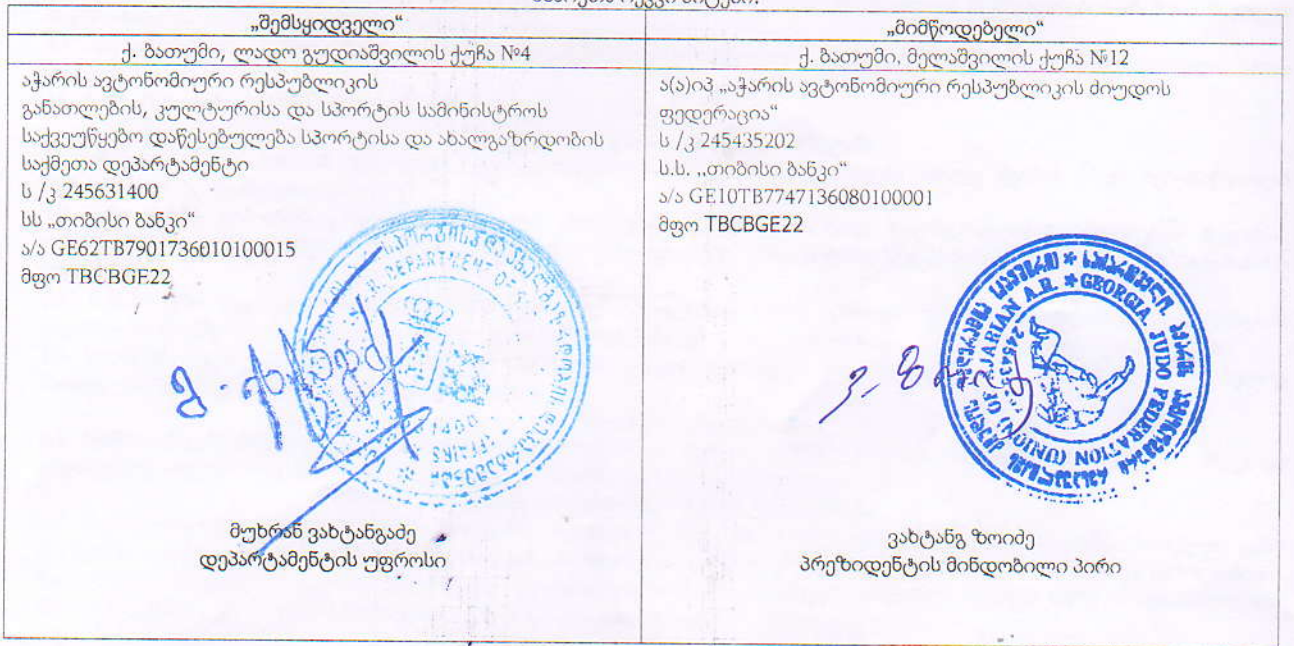 „შემსყიდველი“
ქ. ბათუმი, ლადო გუდიაშვილის ქუჩა №4
აჭარის ავტონომიური რესპუბლიკის
განათლების, კულტურისა და სპორტის სამინისტროს
საქვეუწყებო დაწესებულება სპორტისა და ახალგაზრდობის
საქმეთა დეპარტამენტი
ს /კ 245631400
სს „თიბისი ბანკი“
ა/ა GE62TB7901736010100015
მფო TBCBGE22
მუხრან ვახტანგაძე
დეპარტამენტის უფროსი
„მიმწოდებელი“
ქ. ბათუმი, მელაშვილის ქუჩა №12
ა(ა)იპ „აჭარის ავტონომიური რესპუბლიკის ძიუდოს
ფედერაცია“
ს /კ 245435202
ს.ს. „თიბისი ბანკი“
ა/ა GE10TB7747136080100001
მფო TBCBGE22
GEORGIA JUDO FEDERATION (UNION) OF
ვახტანგ ზოიძე
პრეზიდენტის მინდობილი პირი